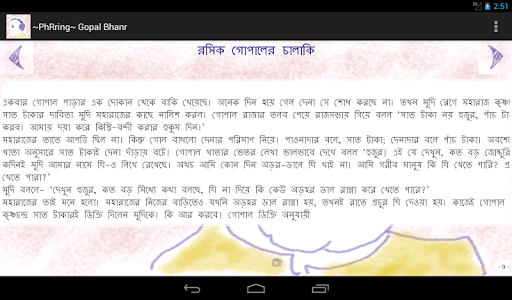 2:51
~PhRring~ Gopal Bhanr
রসিক গোপালের চালাকি
একবার গোপাল পাড়ার এক দোকান থেকে বাকি খেয়েছে। অনেক দিন হয়ে গেল দেনা সে শোধ করছে না। তখন মুদি রেগে মহারাজ কৃষ্ণ
সাত টাকার দাবিতা মুদি মহারাজের কাছে নালিশ করল। গোপাল রাজার তলব পেয়ে রাজসভায় গিয়ে বলল 'সাত টাকা নয় হুজুর, পাঁচ টা
করব। আমায় দয়া করে কিস্তি-বন্দী করার হুকুম দিন।'
মহারাজের তাতে আপত্তি ছিল না। কিন্তু গোল বাধলো দেনার পরিমাণ নিয়ে। পাওনাদার বলে, সাত টাকা; দেনাদার বলে পাঁচ টাকা। অবশে
খাতা অনুসারে সাত টাকাই দেনা দাঁড়ায় বটে। গোপাল খাতার ভেতর লেখা ভালভাবে দেখে বলল 'হুজুর। এই যে দেখুন, কত বড় জোচ্চুরি
কদিনই মুদি আমার নামে ঘি-ও লিখে রেখেছে। অথচ আমি কোন দিন অড়হর-ডালে ঘি খাই না। আমি গরীব মানুষ কি ঘি খেতে পারি? প্র
খেতে পারা?'
মুদি বললে- 'দেখুন হুজুর, কত বড় মিথ্যে কথা বলছে, ঘি না দিয়ে কি কেউ অড়হর ডাল রান্না করে খেতে পারে?'
মহারাজের তাই মনে হলো। মহারাজের নিজের বাড়িতেও যখনি অড়হর ডাল রান্না হয়, তখনই রাতে প্রচুর ঘি দেওয়া হয়। কাজেই গোপাল
কৃষ্ণচন্দ্র সাত টাকারই ডিক্রি দিলেন মুদিকে। কি আর করবে। গোপাল ডিক্রি অনুযায়ী
- 9 -